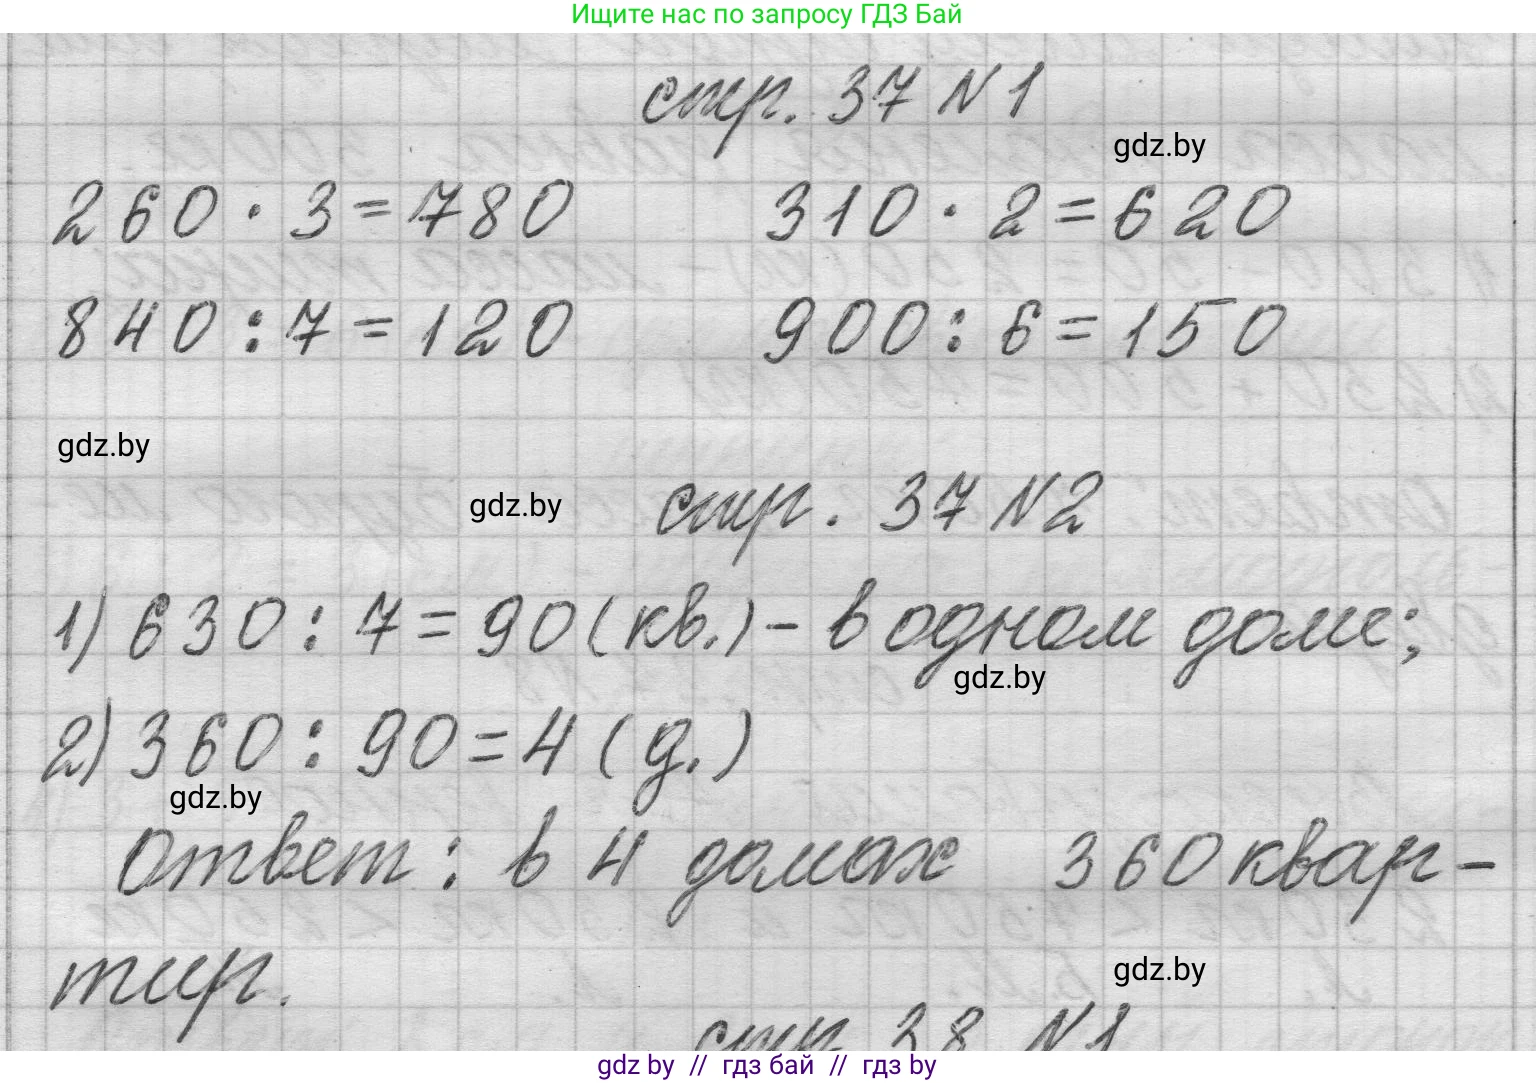 Ищите нас по запросу ГДЗ Бай
стр. 37 N 1
gdz.by
260 · 3 = 780 310 · 2 = 620
840 : 7 = 120 900 : 6 = 150
gdz.by
gdz.by
стр. 37 N 2
1) 630 : 7 = 90 (кв.) - в одном доме;
gdz.by
2) 360 : 90 = 4 (д.)
gdz.by
Ответ: в 4 домах 360 квар-
тир.
gdz.by
стр. 38 N1
gdz by // гдз бай // гдз by